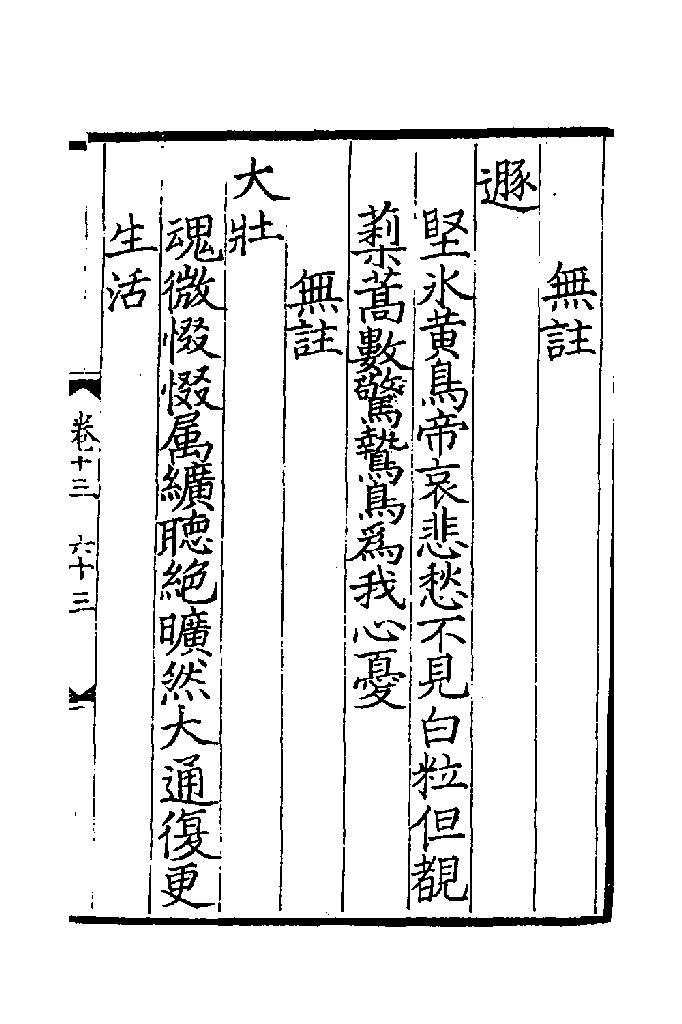 無註
遯
堅氷黄鳥帝哀悲愁不見白粒但覩
藜蒿數驚鷙鳥爲我心憂
無註
大壯
魂微惙惙属纊聽絶曠然大通復更
生活
卷十三 六十三